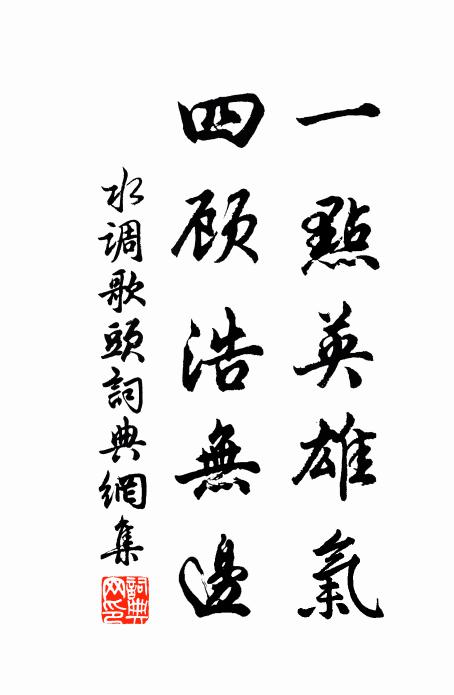 一點英雄氣
四顾浩無邊
水调歌頭詞典網集
詞典网印